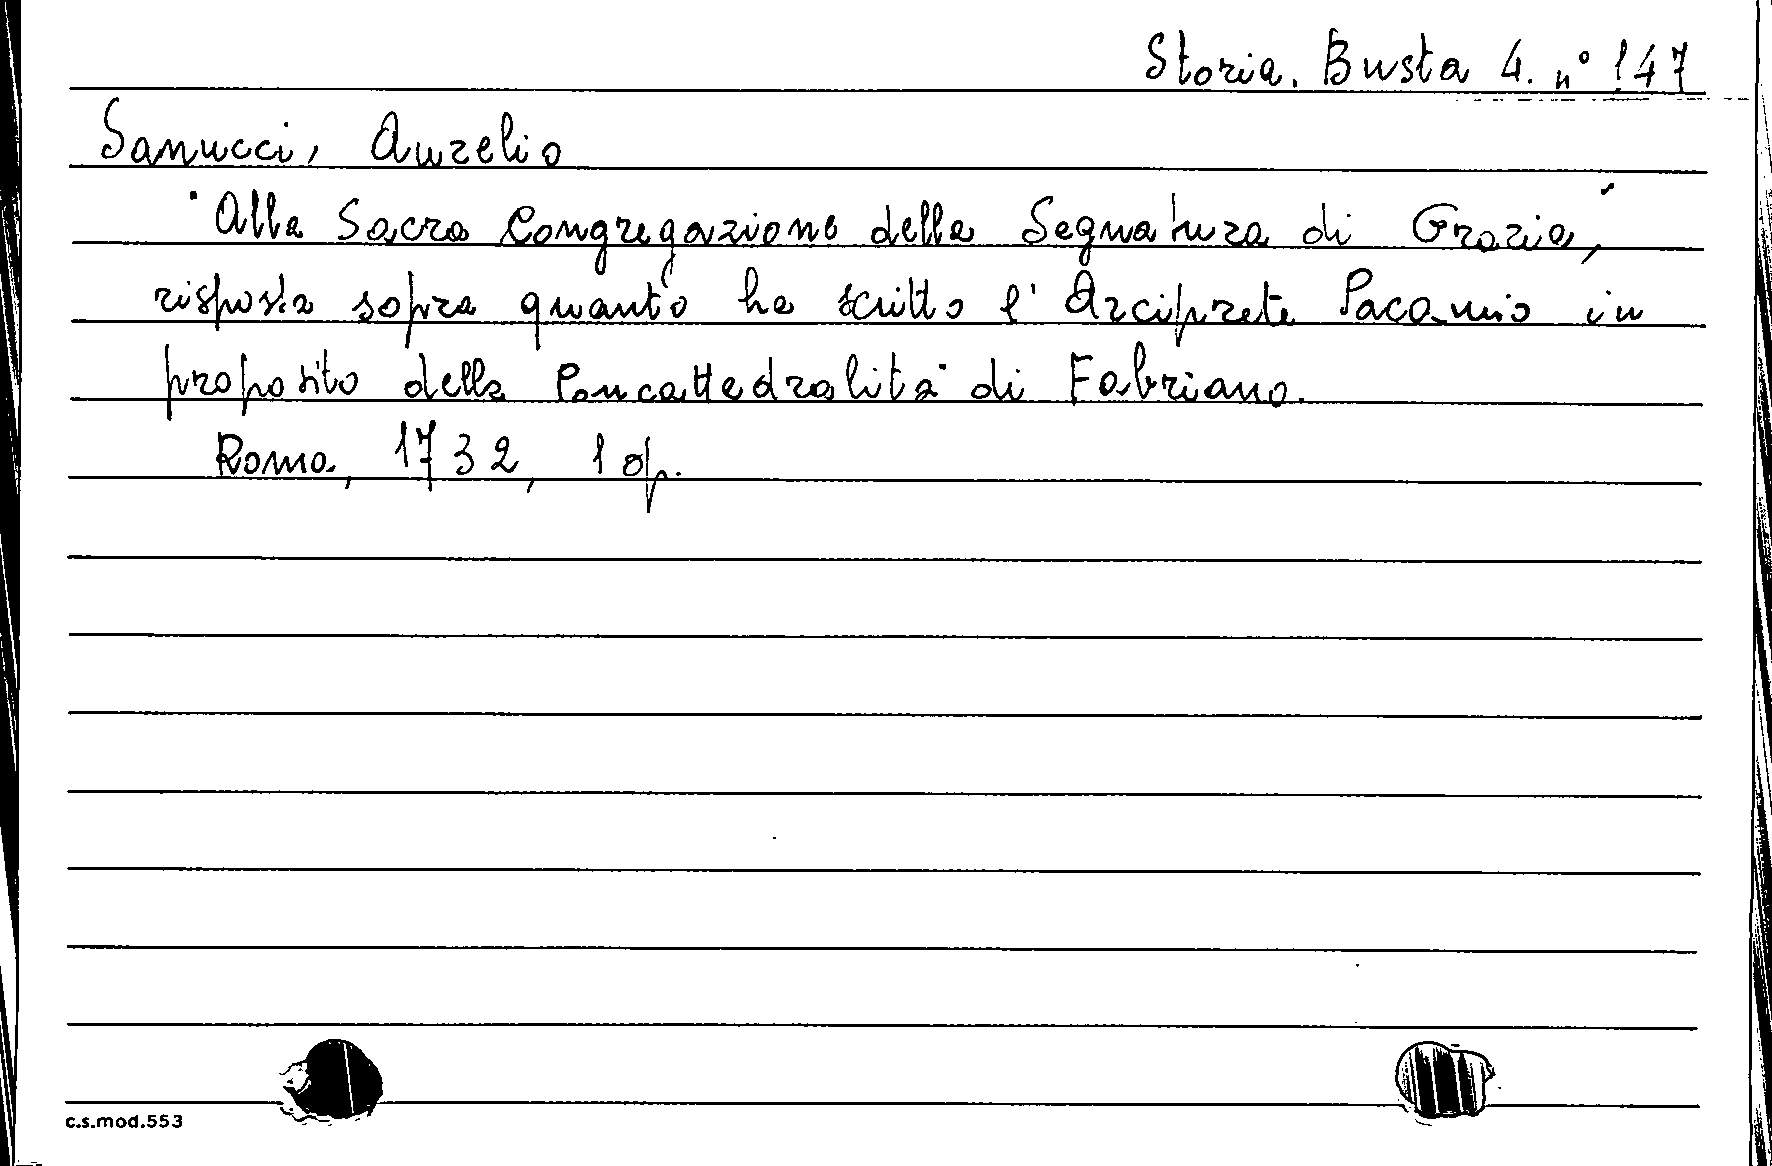 Storia. Busta 4. n° 147
Sanucci, Aurelio
"Alla Sacra Congregazione della Segnatura di Grazia,"
risposta sopra quanto ha scritto l'Arciprete Pacamio in
proposito della Concattedralità di Fabriano.
Roma, 1732, 1 op.
c.s.mod.553